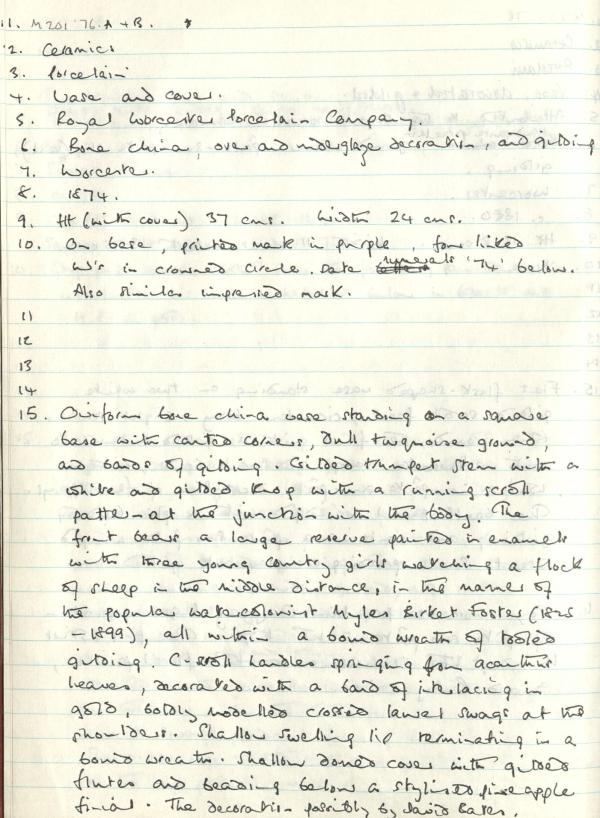 11. M201:76. A + B.
2. Ceramics
3. Porcelain
4. Vase and cover.
5. Royal Worcester Porcelain Company
6. Bone china, over and underglaze decoration, and gilding
7. Worcester.
8. 1874.
9. Ht (with cover) 37 cms. Width 24 cms.
10. On base, printed mark in purple, four linked
W's in crowned circle. Date numerals '74' below.
Also similar impressed mark.
11
12
13
14
15. Oviform bone china vase standing on a square
base with canted corners, dull turquoise ground,
and bands of gilding. Gilded trumpet stem with a
white and gilded knop with a running scroll
pattern at the junction with the body. The
front bears a large reserve painted in enamels
with three young country girls watching a flock
of sheep in the middle distance, in the manner of
the popular watercolourist Myles Birket Foster (1825
- 1899), all within a bound wreath of tooled
gilding. C-scroll handles springing from acanthus
leaves, decorated with a band of interlacing in
gold, boldly modelled crossed laurel swags at the
shoulders. Shallow swelling lip terminating in a
bound wreath. Shallow domed cover with gilded
flutes and beading below a stylised pineapple
finial. The decoration possibly by David Bates.